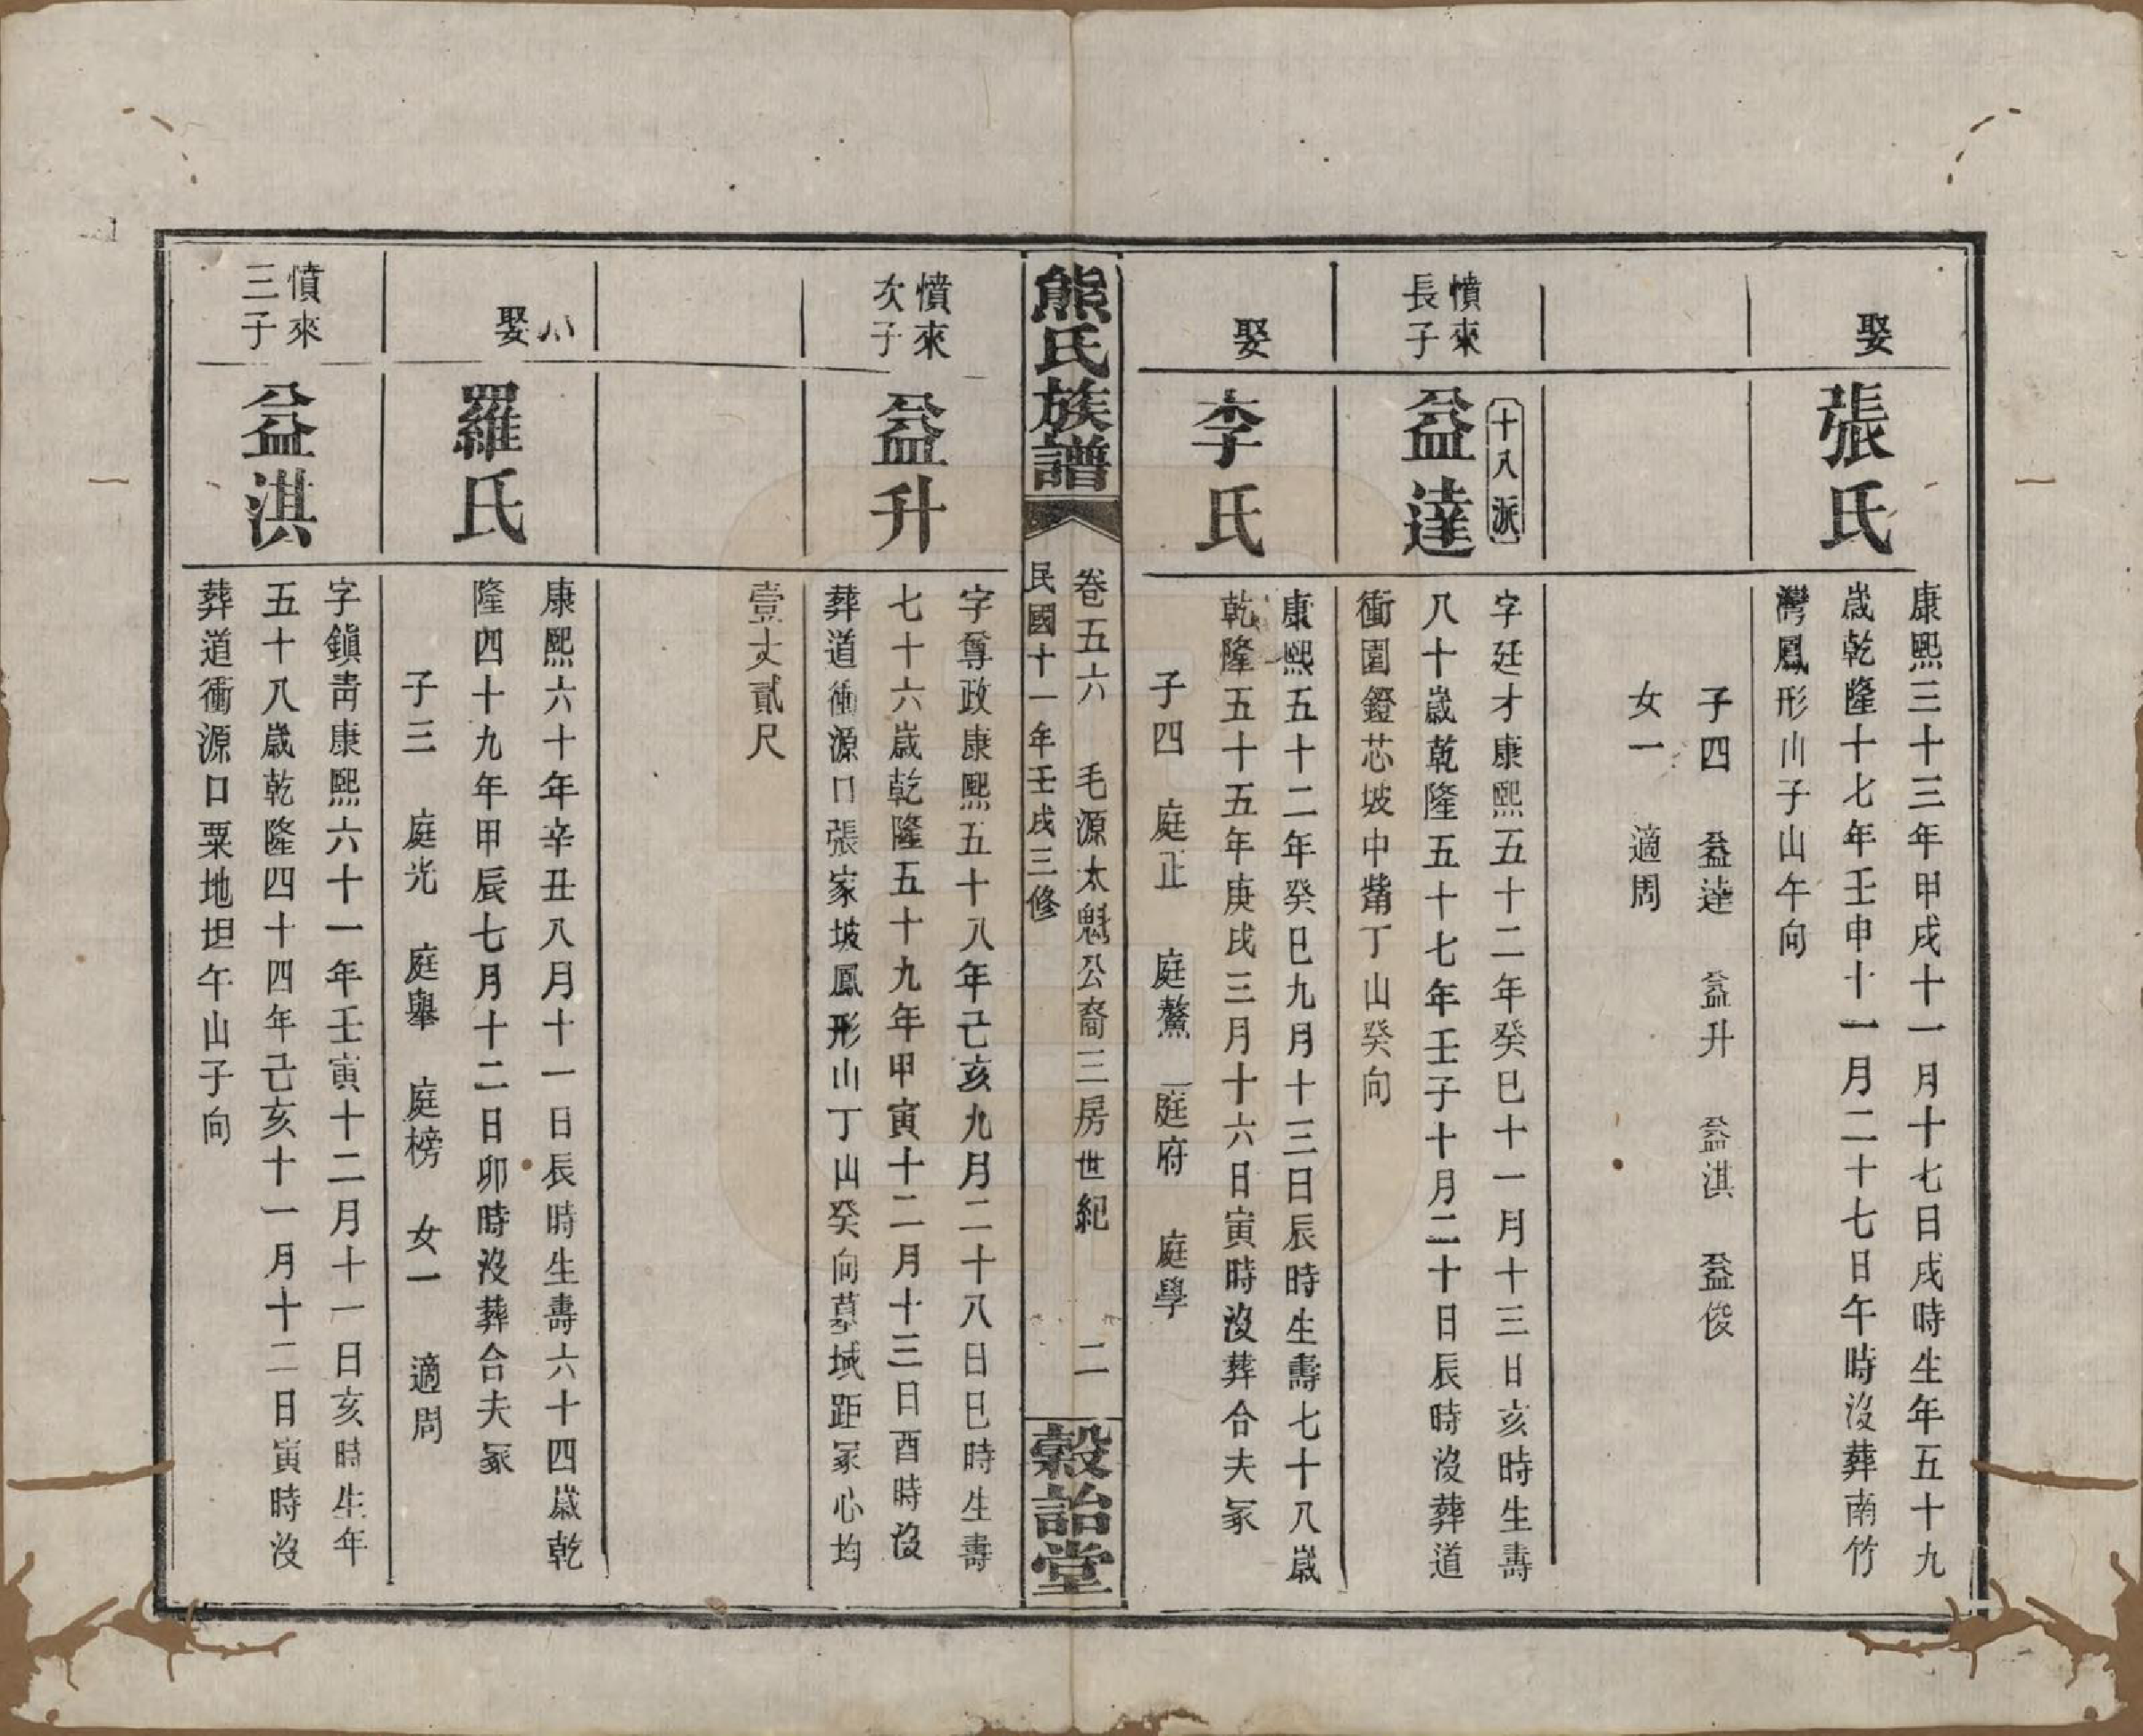 娶
張氏
康熙三十三年甲戌十一月十七日戌時生年五十九
歲乾隆十七年壬申十一月二十七日午時沒葬南竹
灣鳳形山子山午向
子四 益達 益升 益淇 益俊
女一 適周
憤來
長子
十八派
益達
字廷才康熙五十二年癸巳十一月十三日亥時生壽
八十歲乾隆五十七年壬子十月二十日辰時沒葬道
衝園鐙芯坡中觜丁山癸向
娶
李氏
康熙五十二年癸巳九月十三日辰時生壽七十八歲
乾隆五十五年庚戌三月十六日寅時沒葬合夫冢
子四 庭正 庭鰲 庭府 庭學
熊氏族譜
卷五六 毛源太魁公裔三房世紀 二
民國十一年壬戌三修
穀詒堂
憤來
次子
益升
字尊政康熙五十八年己亥九月二十八日巳時生壽
七十六歲乾隆五十九年甲寅十二月十三日酉時沒
葬道衝源口張家坡鳳形山丁山癸向墓域距冢心均
壹丈貳尺
娶
羅氏
康熙六十年辛丑八月十一日辰時生壽六十四歲乾
隆四十九年甲辰七月十二日卯時沒葬合夫冢
子三 庭光 庭舉 庭榜 女一 適周
憤來
三子
益淇
字鎭靑康熙六十一年壬寅十二月十一日亥時生年
五十八歲乾隆四十四年己亥十一月十二日寅時沒
葬道衝源口粟地坦午山子向